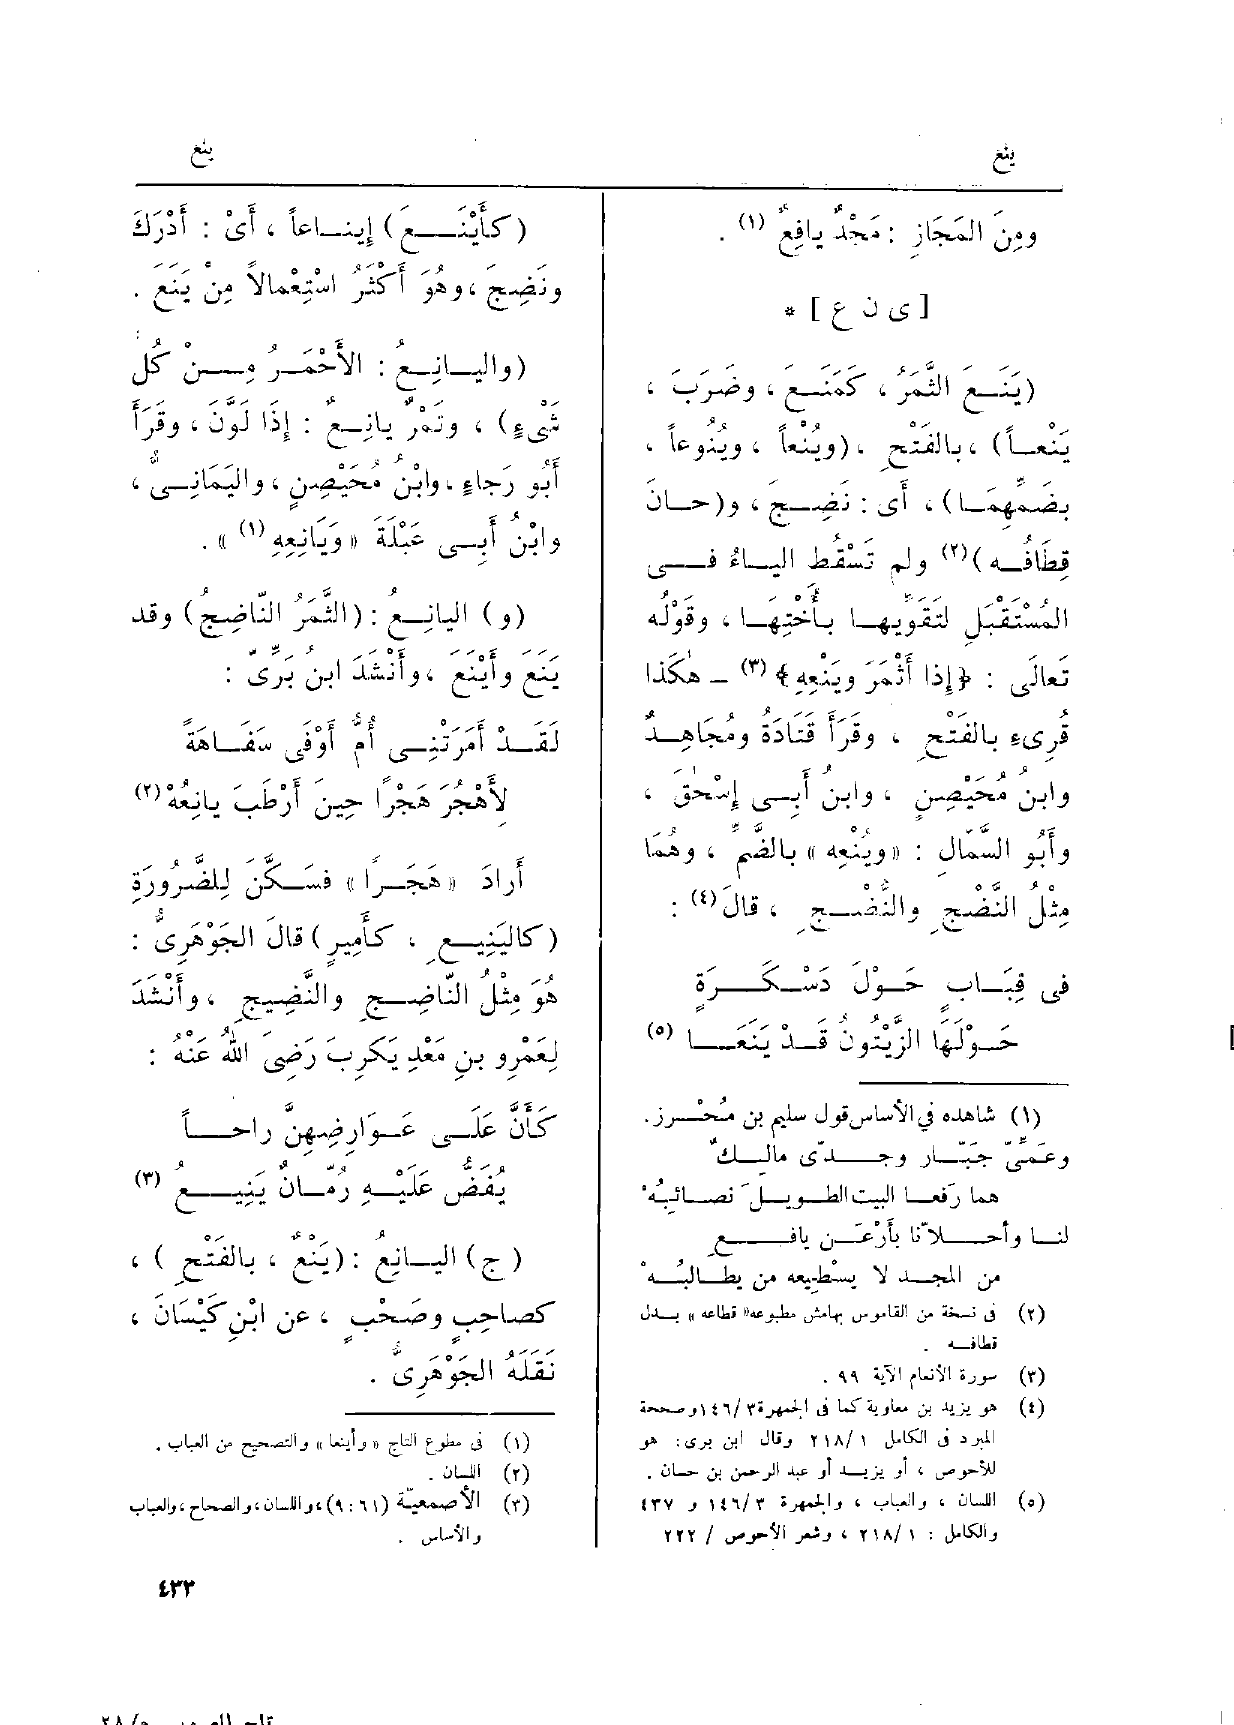 ينع
ينع
ومِنَ المَجَازِ : مَجْدٌ يافِعٌ (١) .
[ ى ن ع ] *
(يَنَـع الثَّمَرُ ، كَمَنَـع ، وضَرَبَ ،
يَنْعـاً) ، بالفَتْحِ ، (ويُنْعاً ، ويُنُوعاً ،
بضَمِّهِمَـا) ، أى : نَضِـجَ ، و(حـانَ
قِطَافُـه )(٢) ولم تَسْقُط اليـاءُ فـى
المُسْتَقْبَلِ لتَقَويهـا بـأُخْتِهـا ، وقَوْلُه
تَعالَى : ﴿إذا أَثْمَرَ ويَنْعِهِ﴾ (٣) ــ هٰكَذا
قُرِىء بالفَتْحِ ، وقَرَأَ قَتَادَةُ ومُجَاهِـدٌ
وابنُ مُحَيْصِنٍ ، وابنُ أَبِـى إِسْحٰقَ ،
وأَبُو السَّمّالِ : «ويُنْعِه» بالضَّمِّ ، وهُمَا
مِثْلُ النَّضْجِ والنُّضْـجِ ، قالَ(٤) :
فى قِبَـابٍ حَـوْلَ دَسْـكَـرَةٍ
حَـوْلَهَا الزَّيْتُونُ قَـدْ يَنَعَـا (٥)
(١) شاهده في الأساس قول سليم بن مُحْـرز.
وعَمِّىَ جَبّـار وجـدّى مالِـكٌ
هما رَفَعـا البيت الطويـلَ نصـائبُهْ
لنـا وأحـلاّنا بأَرْعَـن يافـع
من المجـد لا يسْطيعه من يطـالبُـهْ
(٢) فى نسخة من القاموس بهامش مطبوعه «قطاعه» بـدل
قطافـه .
(٣) سورة الأنعام الآية ٩٩ .
(٤) هو يزيد بن معاوية كما فى الجمهرة ١٤٦/٣ وصححه
المبرد فى الكامل ٢١٨/١ وقال ابن برى: هو
للأحوص ، أو يزيـد أو عبد الرحمن بن حسان .
(٥) اللسان ، والعباب ، والجمهرة ١٤٦/٣ و ٤٣٧
والكامل : ٢١٨/١ ، وشعر الأحوص / ٢٢٢
(كأَيْنَـعَ) إينـاعاً ، أَىْ : أَدْرَكَ
ونَضِجَ ، وهُوَ أَكْثَرُ اسْتِعْمالاً مِنْ يَنَعَ .
(واليـانِـعُ : الأَحْمَـرُ مِـنْ كُلِّ
شَىْءٍ) ، وتَمْرٌ يانِـعٌ : إِذَا لَوَّنَ ، وقَرَأَ
أَبُو رَجاءٍ ، وابْنُ مُحَيْصِنٍ ، واليَمَانِـىُّ ،
وابْنُ أَبِـى عَبْلَةَ «ويَانِعِه (١) » .
(و) اليانِـعُ : (الثَّمَرُ النّاضِجُ) وقد
يَنَعَ وأَيْنَعَ ، وأَنْشَدَ ابنُ بَرِّىّ :
لَقَـدْ أَمَرَتْنِـى أُمُّ أَوْفَى سَفَـاهَةً
لأَهْجُرَ هَجْرًا حِينَ أَرْطَبَ يانِعُهْ(٢)
أرادَ «هَجَـراً» فسَـكَّنَ لِلضَّرُورَةِ
(كاليَنِيـعِ ، كأَمِيرٍ) قالَ الجَوْهَرِىُّ :
هُوَ مِثْلُ النّاضِـجِ والنَّضِيجِ ، وأَنْشَدَ
لِعَمْرِو بنِ مَعْدِ يَكَرِبَ رَضِىَ اللهُ عَنْهُ :
كَأَنَّ عَلَـى عَـوَارِضِهِنَّ راحـاً
يُفَضُّ عَلَيْـهِ رُمّـانٌ يَنِيـعُ (٣)
(ج) اليـانِعُ : (يَنْعٌ ، بالفَتْحِ ) ،
كصـاحِبٍ وصَحْبٍ ، عن ابْنِ كَيْسَانَ ،
نَقَلَهُ الجَوْهَرِىُّ .
(١) فى مطبوع التاج «وأينعا» والتصحيح من العباب .
(٢) اللسان .
(٣) الأصمعيّة (٦١ : ٩) ، واللسان ، والصحاح ، والعباب
والأساس .
٤٣٣